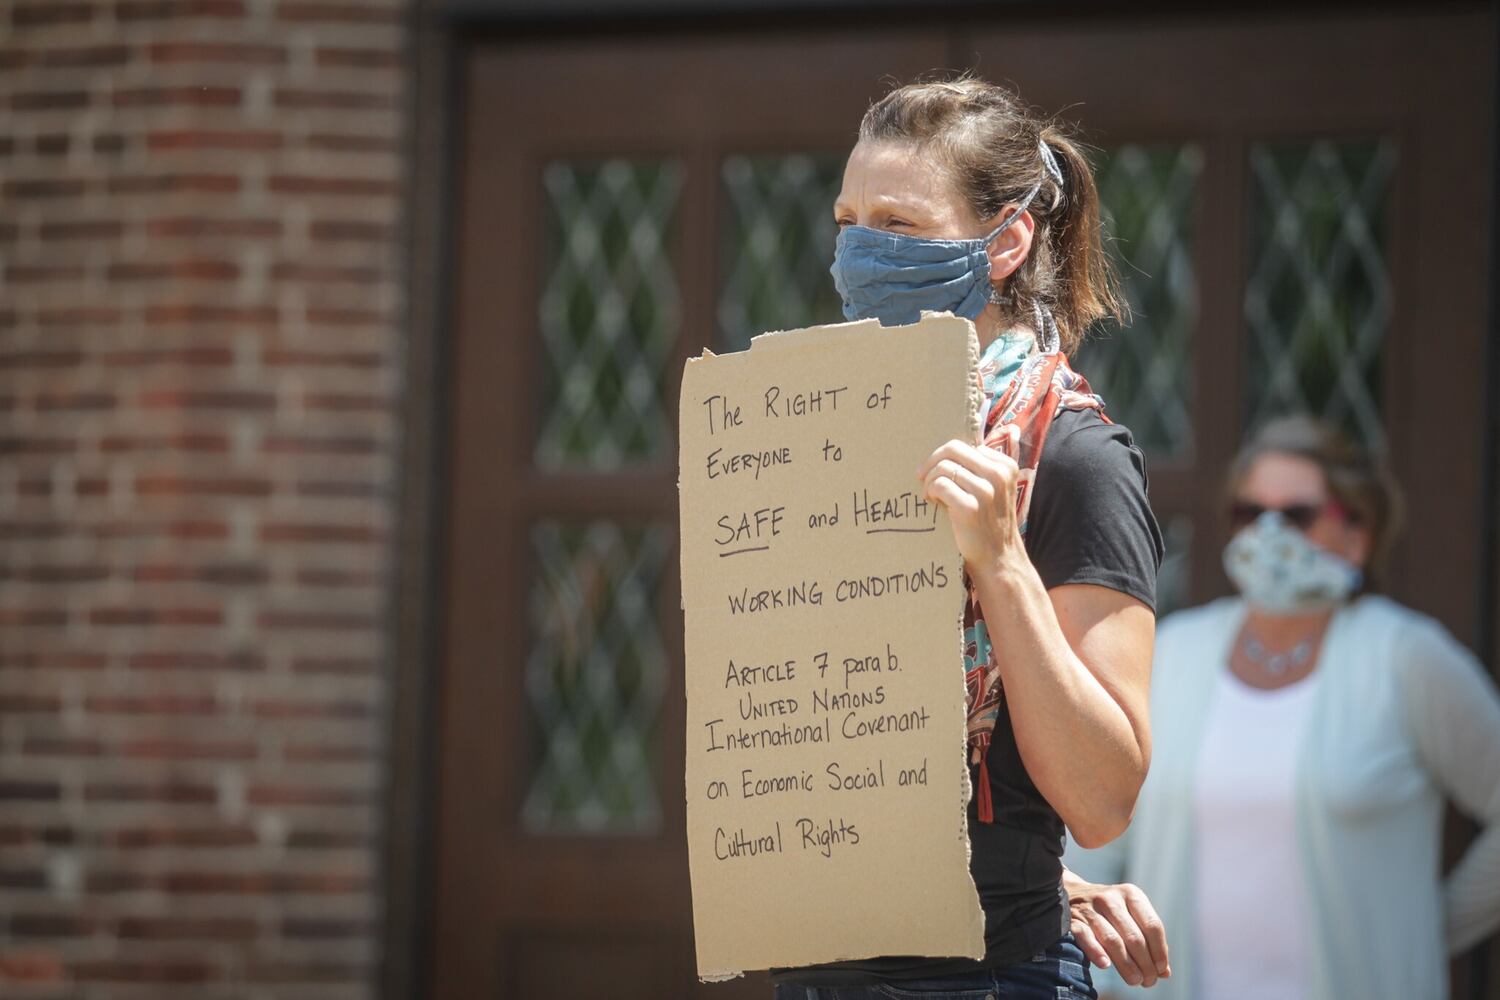 The RIGHT of
EVERYONE to
SAFE and HEALTHY
WORKING CONDITIONS
ARTICLE 7 para b.
UNITED NATIONS
International Covenant
on Economic Social and
Cultural Rights